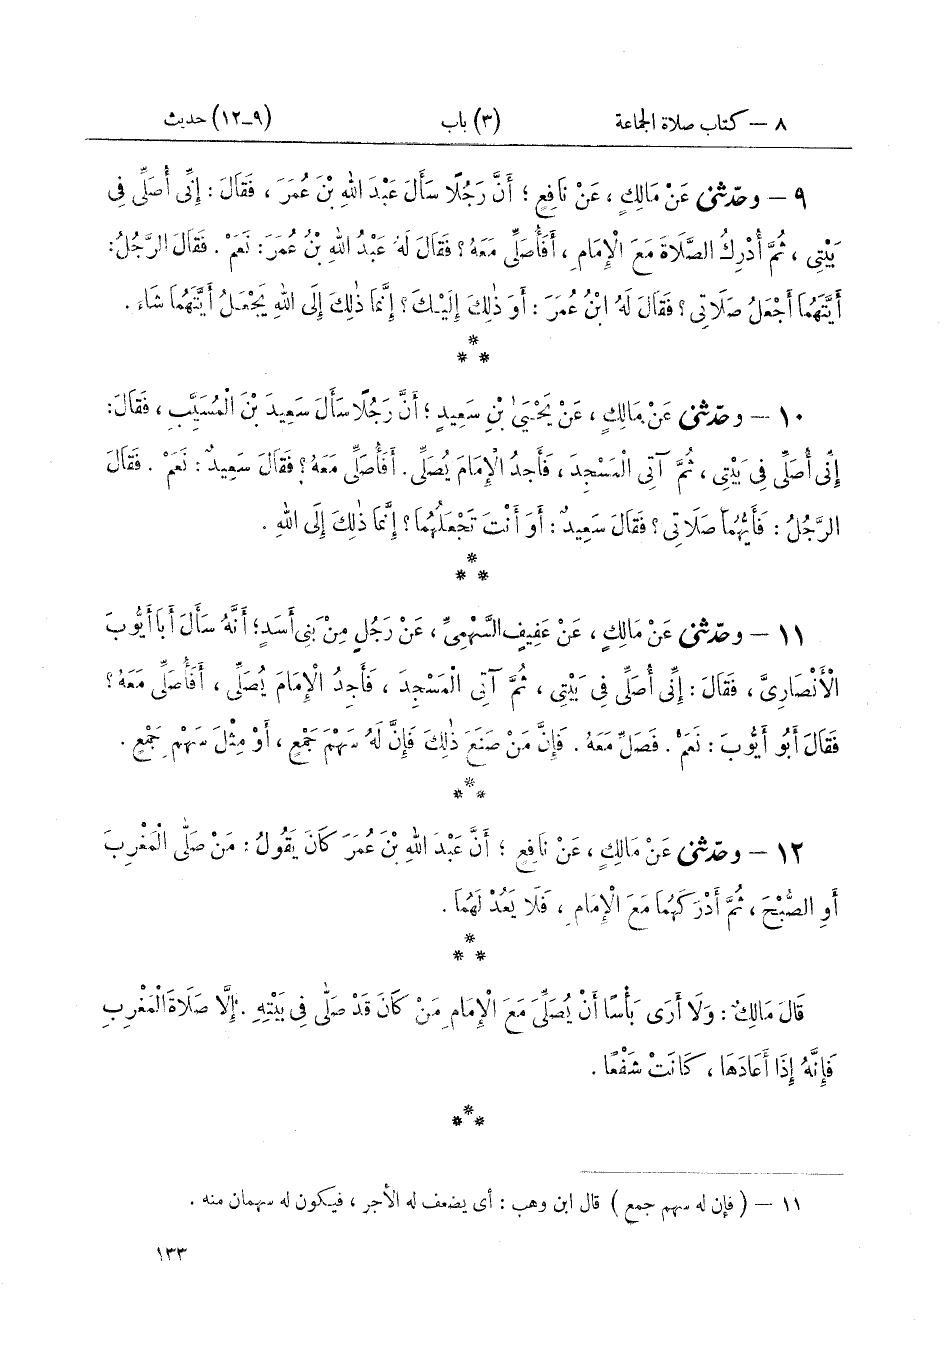 ٨ – كتاب صلاة الجماعة (٣) باب (٩–١٢) حديث
٩ – وحدّثنى عَنْ مَالِكٍ ، عَنْ نَافِعٍ ؛ أَنَّ رَجُلًا سَأَلَ عَبْدَ اللهِ بْنَ عُمَرَ ، فَقَالَ : إِنِّى أُصَلِّى فِى
بَيْتِى ، ثُمَّ أُدْرِكُ الصَّلَاةَ مَعَ الْإِمَامِ ، أَفَأُصَلِّى مَعَهُ ؟ فَقَالَ لَهُ عَبْدُ اللهِ بْنُ عُمَرَ : نَعَمْ . فَقَالَ الرَّجُلُ :
أَيَّتَهُمَا أَجْعَلُ صَلَاتِى ؟ فَقَالَ لَهُ ابْنُ عُمَرَ : أَوَ ذٰلِكَ إِلَيْكَ ؟ إِنَّمَا ذٰلِكَ إِلَى اللهِ يَجْعَلُ أَيَّتَهُمَا شَاءَ .
*
* *
١٠ – وحدّثنى عَنْ مَالِكٍ ، عَنْ يَحْيَىٰ بْنِ سَعِيدٍ ؛ أَنَّ رَجُلًا سَأَلَ سَعِيدَ بْنَ الْمُسَيَّبِ ، فَقَالَ :
إِنِّى أُصَلِّى فِى بَيْتِى ، ثُمَّ آتِى الْمَسْجِدَ ، فَأَجِدُ الْإِمَامَ يُصَلِّى . أَفَأُصَلِّى مَعَهُ ؟ فَقَالَ سَعِيدٌ : نَعَمْ . فَقَالَ
الرَّجُلُ : فَأَيُّهُمَا صَلَاتِى ؟ فَقَالَ سَعِيدٌ : أَوَ أَنْتَ تَجْعَلُهُمَا ؟ إِنَّمَا ذٰلِكَ إِلَى اللهِ .
*
* *
١١ – وحدّثنى عَنْ مَالِكٍ ، عَنْ عَفِيفٍ السَّهْمِىِّ ، عَنْ رَجُلٍ مِنْ بَنِى أَسَدٍ ؛ أَنَّهُ سَأَلَ أَبَا أَيُّوبَ
الْأَنْصَارِىَّ ، فَقَالَ : إِنِّى أُصَلِّى فِى بَيْتِى ، ثُمَّ آتِى الْمَسْجِدَ ، فَأَجِدُ الْإِمَامَ يُصَلِّى ، أَفَأُصَلِّى مَعَهُ ؟
فَقَالَ أَبُو أَيُّوبَ : نَعَمْ . فَصَلِّ مَعَهُ . فَإِنَّ مَنْ صَنَعَ ذٰلِكَ فَإِنَّ لَهُ سَهْمَ جَمْعٍ ، أَوْ مِثْلَ سَهْمِ جَمْعٍ .
*
* *
١٢ – وحدّثنى عَنْ مَالِكٍ ، عَنْ نَافِعٍ ؛ أَنَّ عَبْدَ اللهِ بْنَ عُمَرَ كَانَ يَقُولُ : مَنْ صَلَّى الْمَغْرِبَ
أَوِ الصُّبْحَ ، ثُمَّ أَدْرَكَهُمَا مَعَ الْإِمَامِ ، فَلَا يَعُدْ لَهُمَا .
*
* *
قَالَ مَالِكٌ : وَلَا أَرَى بَأْسًا أَنْ يُصَلِّىَ مَعَ الْإِمَامِ مَنْ كَانَ قَدْ صَلَّى فِى بَيْتِهِ . إِلَّا صَلَاةَ الْمَغْرِبِ
فَإِنَّهُ إِذَا أَعَادَهَا ، كَانَتْ شَفْعًا .
*
* *
١١ – ( فإن له سهم جمع ) قال ابن وهب : أى يضعف له الأجر ، فيكون له سهمان منه .
١٣٣